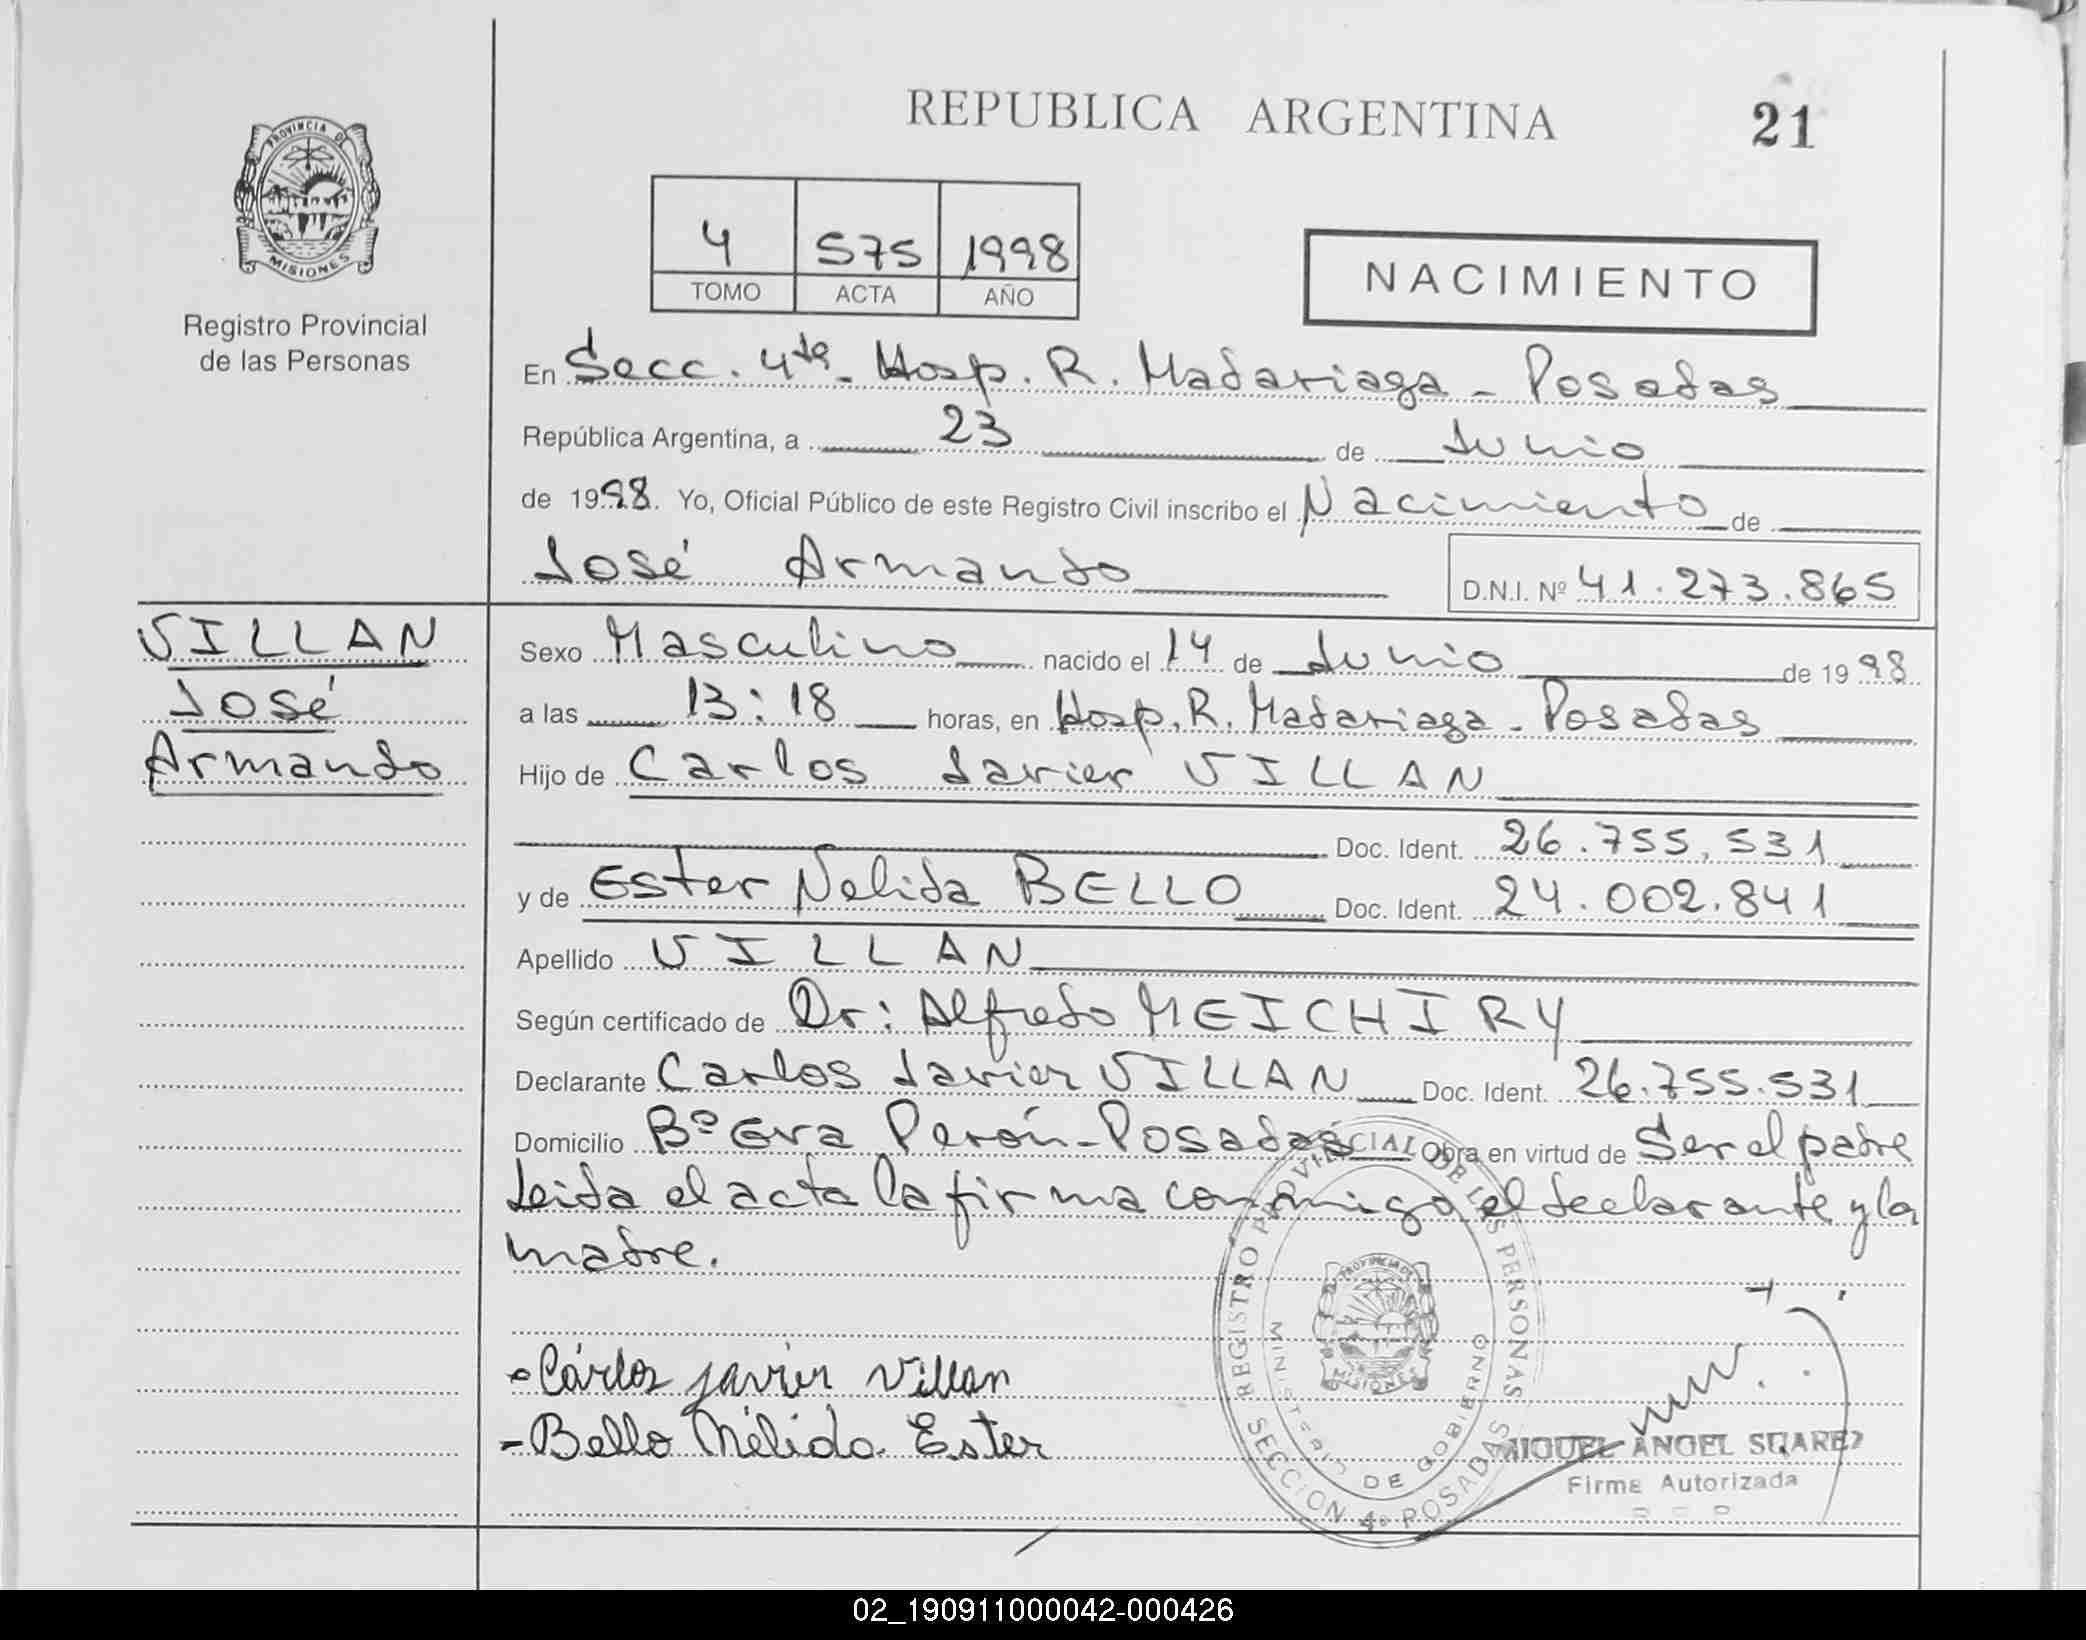 REPUBLICA ARGENTINA
21
PROVINCIA DE
MISIONES
Registro Provincial
de las Personas
4 575 1998
TOMO ACTA AÑO
NACIMIENTO
En Secc. 4ta - Hosp. R. Madariaga - Posadas
República Argentina, a 23 de Junio
de 1998. Yo, Oficial Público de este Registro Civil inscribo el Nacimiento de
José Armando
D.N.I. Nº 41.273.865
VILLAN
José
Armando
Sexo Masculino nacido el 14 de Junio de 1998
a las 13:18 horas, en Hosp. R. Madariaga - Posadas
Hijo de Carlos Javier VILLAN
Doc. Ident. 26.755.531
y de Ester Nelida BELLO Doc. Ident. 24.002.841
Apellido VILLAN
Según certificado de Dr: Alfredo MEICHIRY
Declarante Carlos Javier VILLAN Doc. Ident. 26.755.531
Domicilio Bº Eva Perón - Posadas Obra en virtud de Ser el padre
Leida el acta la firma conmigo el declarante y la
madre.
- Cárlos javier Villan
- Bello Nélida Ester
REGISTRO PROVINCIAL DE LAS PERSONAS
MINISTERIO DE GOBIERNO
SECCION 4º POSADAS
PROVINCIA DE
MISIONES
MIGUEL ANGEL SUAREZ
Firma Autorizada
02_190911000042-000426